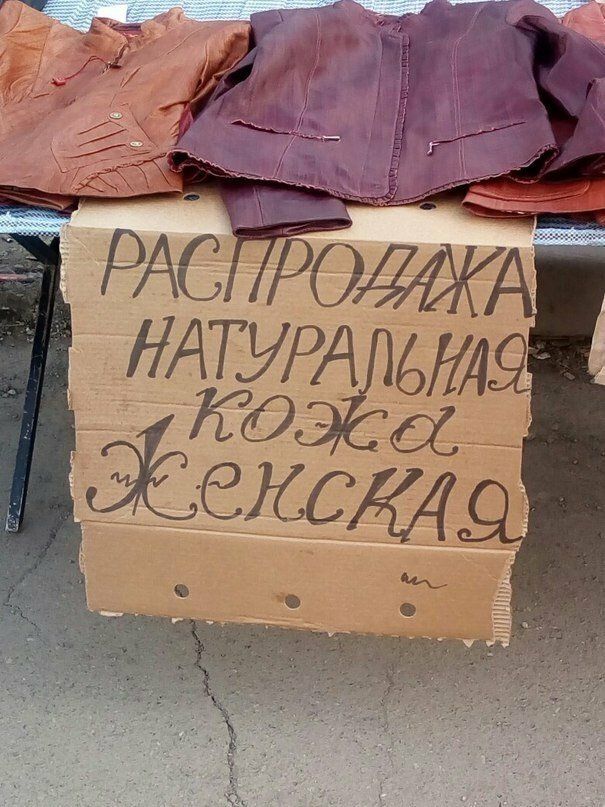 РАСПРОДАЖА
НАТУРАЛЬНАЯ
кожа
Женская